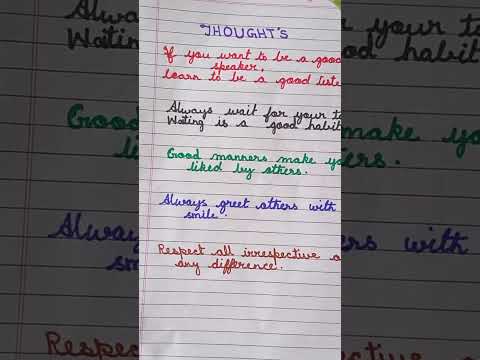 THOUGHT'S
If you want to be a good
speaker,
learn to be a good liste
Always wait for your t
Waiting is a good habit
Good manners make yo
liked by others.
Always greet others with
smile.
Respect all irrespective o
any difference.